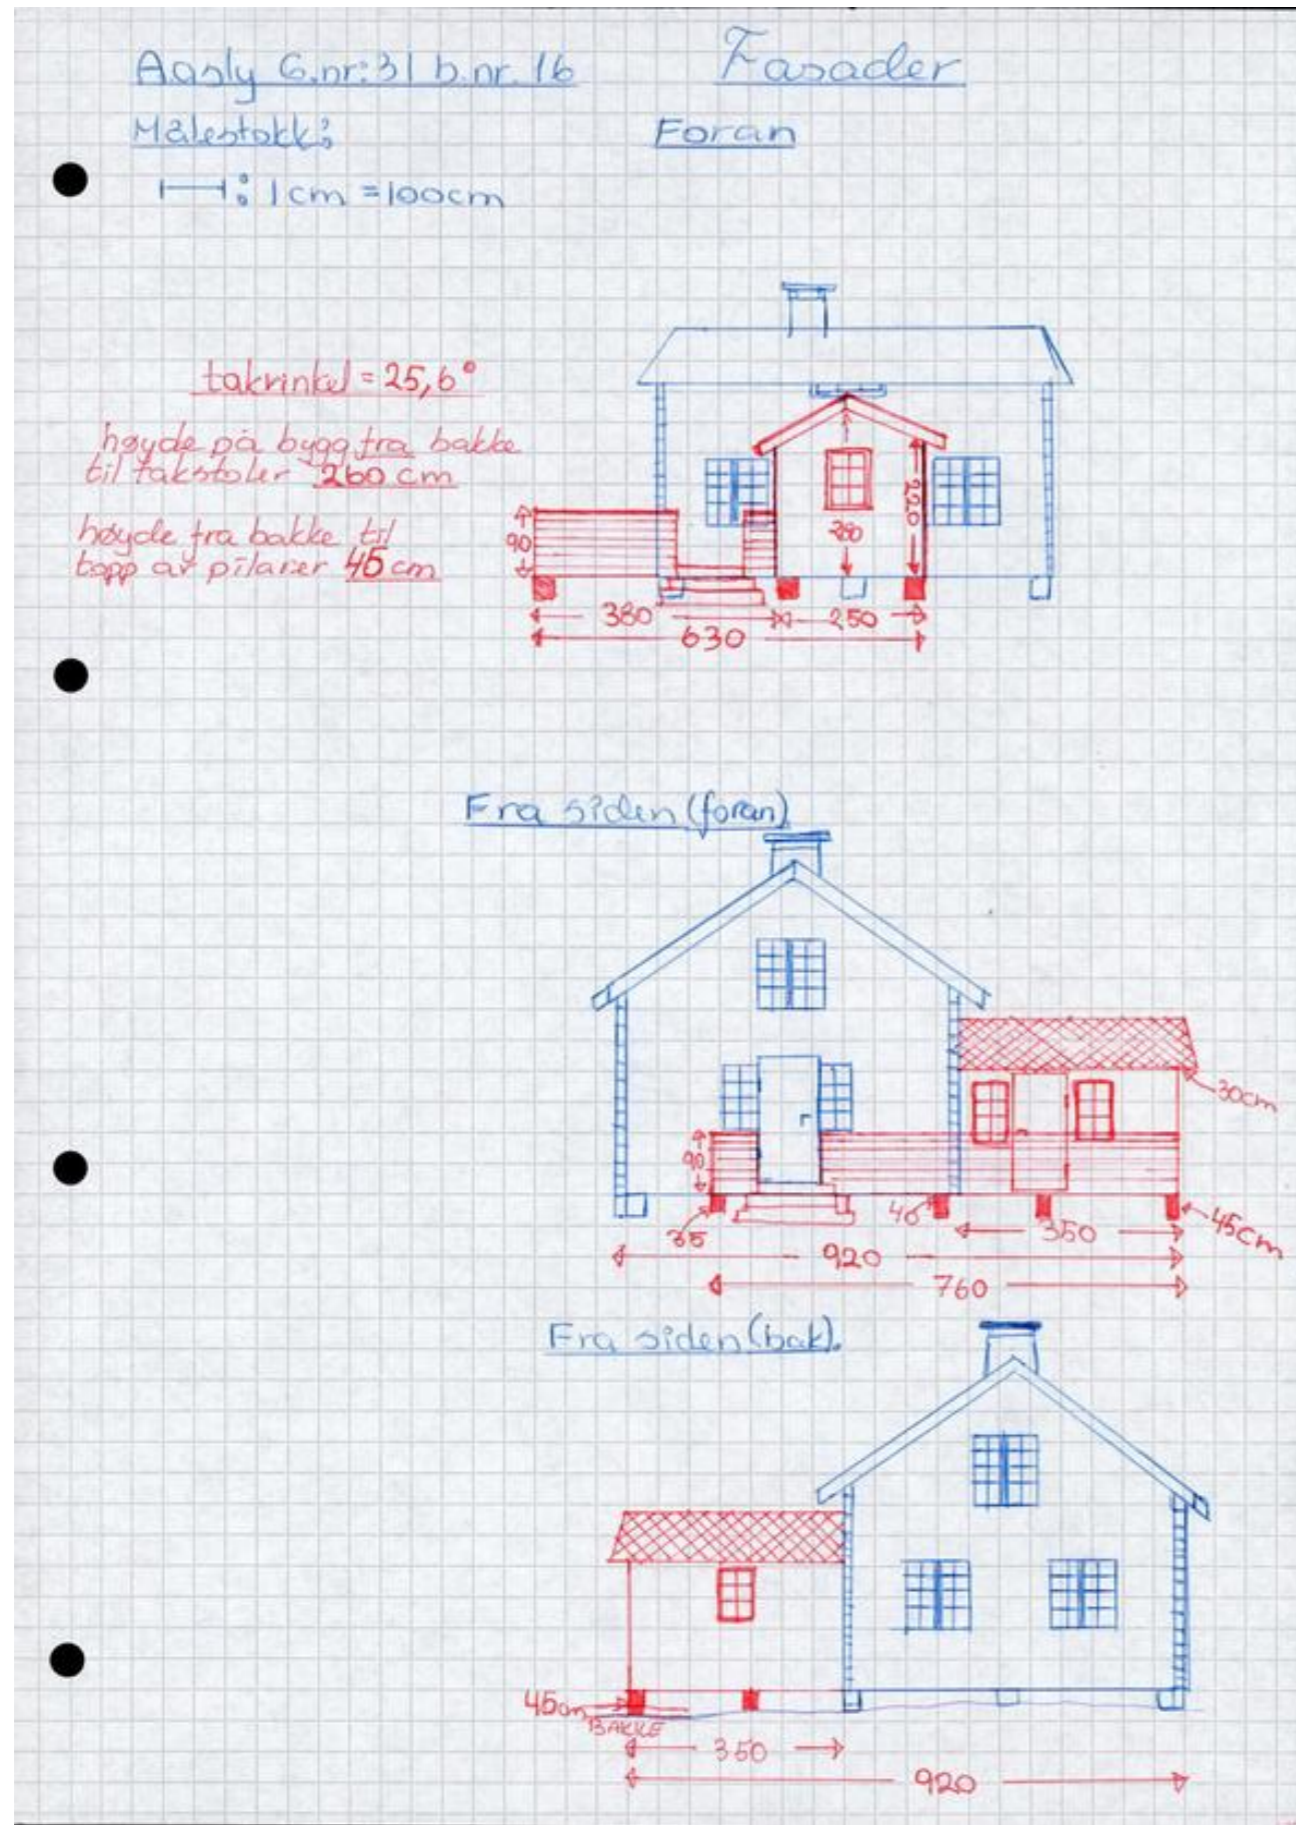 Aasly G.nr: 31 b.nr. 16
Fasader
Målestokk:
Foran
: 1 cm = 100cm
takvinkel = 25,6°
høyde på bygg fra bakke
til takstoler 260 cm
høyde fra bakke til
topp av pilarer 45 cm
90
280
220
380
250
630
Fra siden (foran)
30cm
90
35
46
350
45cm
920
760
Fra siden (bak).
45cm
BAKKE
350
920